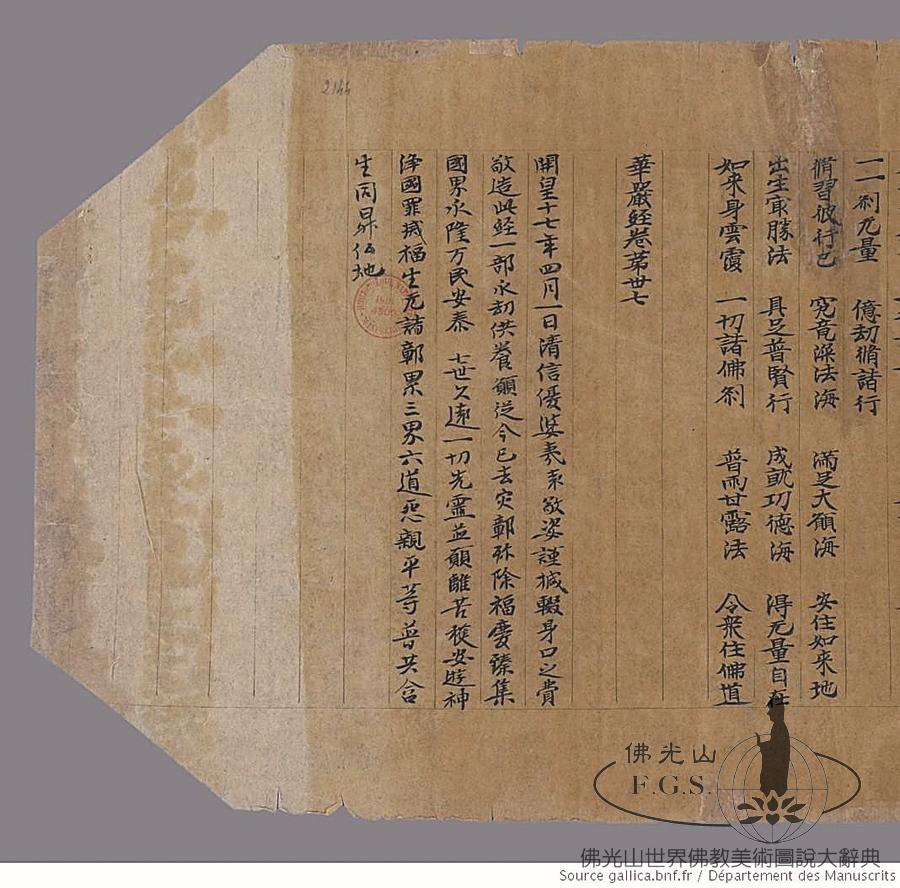 一一刹无量　億劫脩諸行
脩習彼行已　究竟深法海　滿足大願海　安住如来地
出生㝡勝法　具足普賢行　成就功德海　得无量自在
如来身雲霞　一切諸佛刹　普雨甘露法　令衆住佛道
華嚴經卷第卅七
開皇十七年四月一日清信優婆夷袁敬姿謹搣輟身口之費
敬造此經一部永劫供養願從今已去灾鄣殄除福慶臻集
國界永隆万民安泰　七世久遠一切先靈並願離苦獲安遊神
淨國罪滅福生无諸鄣累三界六道怨親平等普共含
生同昇仏地
2144
佛光山
F.G.S.
佛光山世界佛教美術圖說大辭典
Source gallica.bnf.fr / Département des Manuscrits